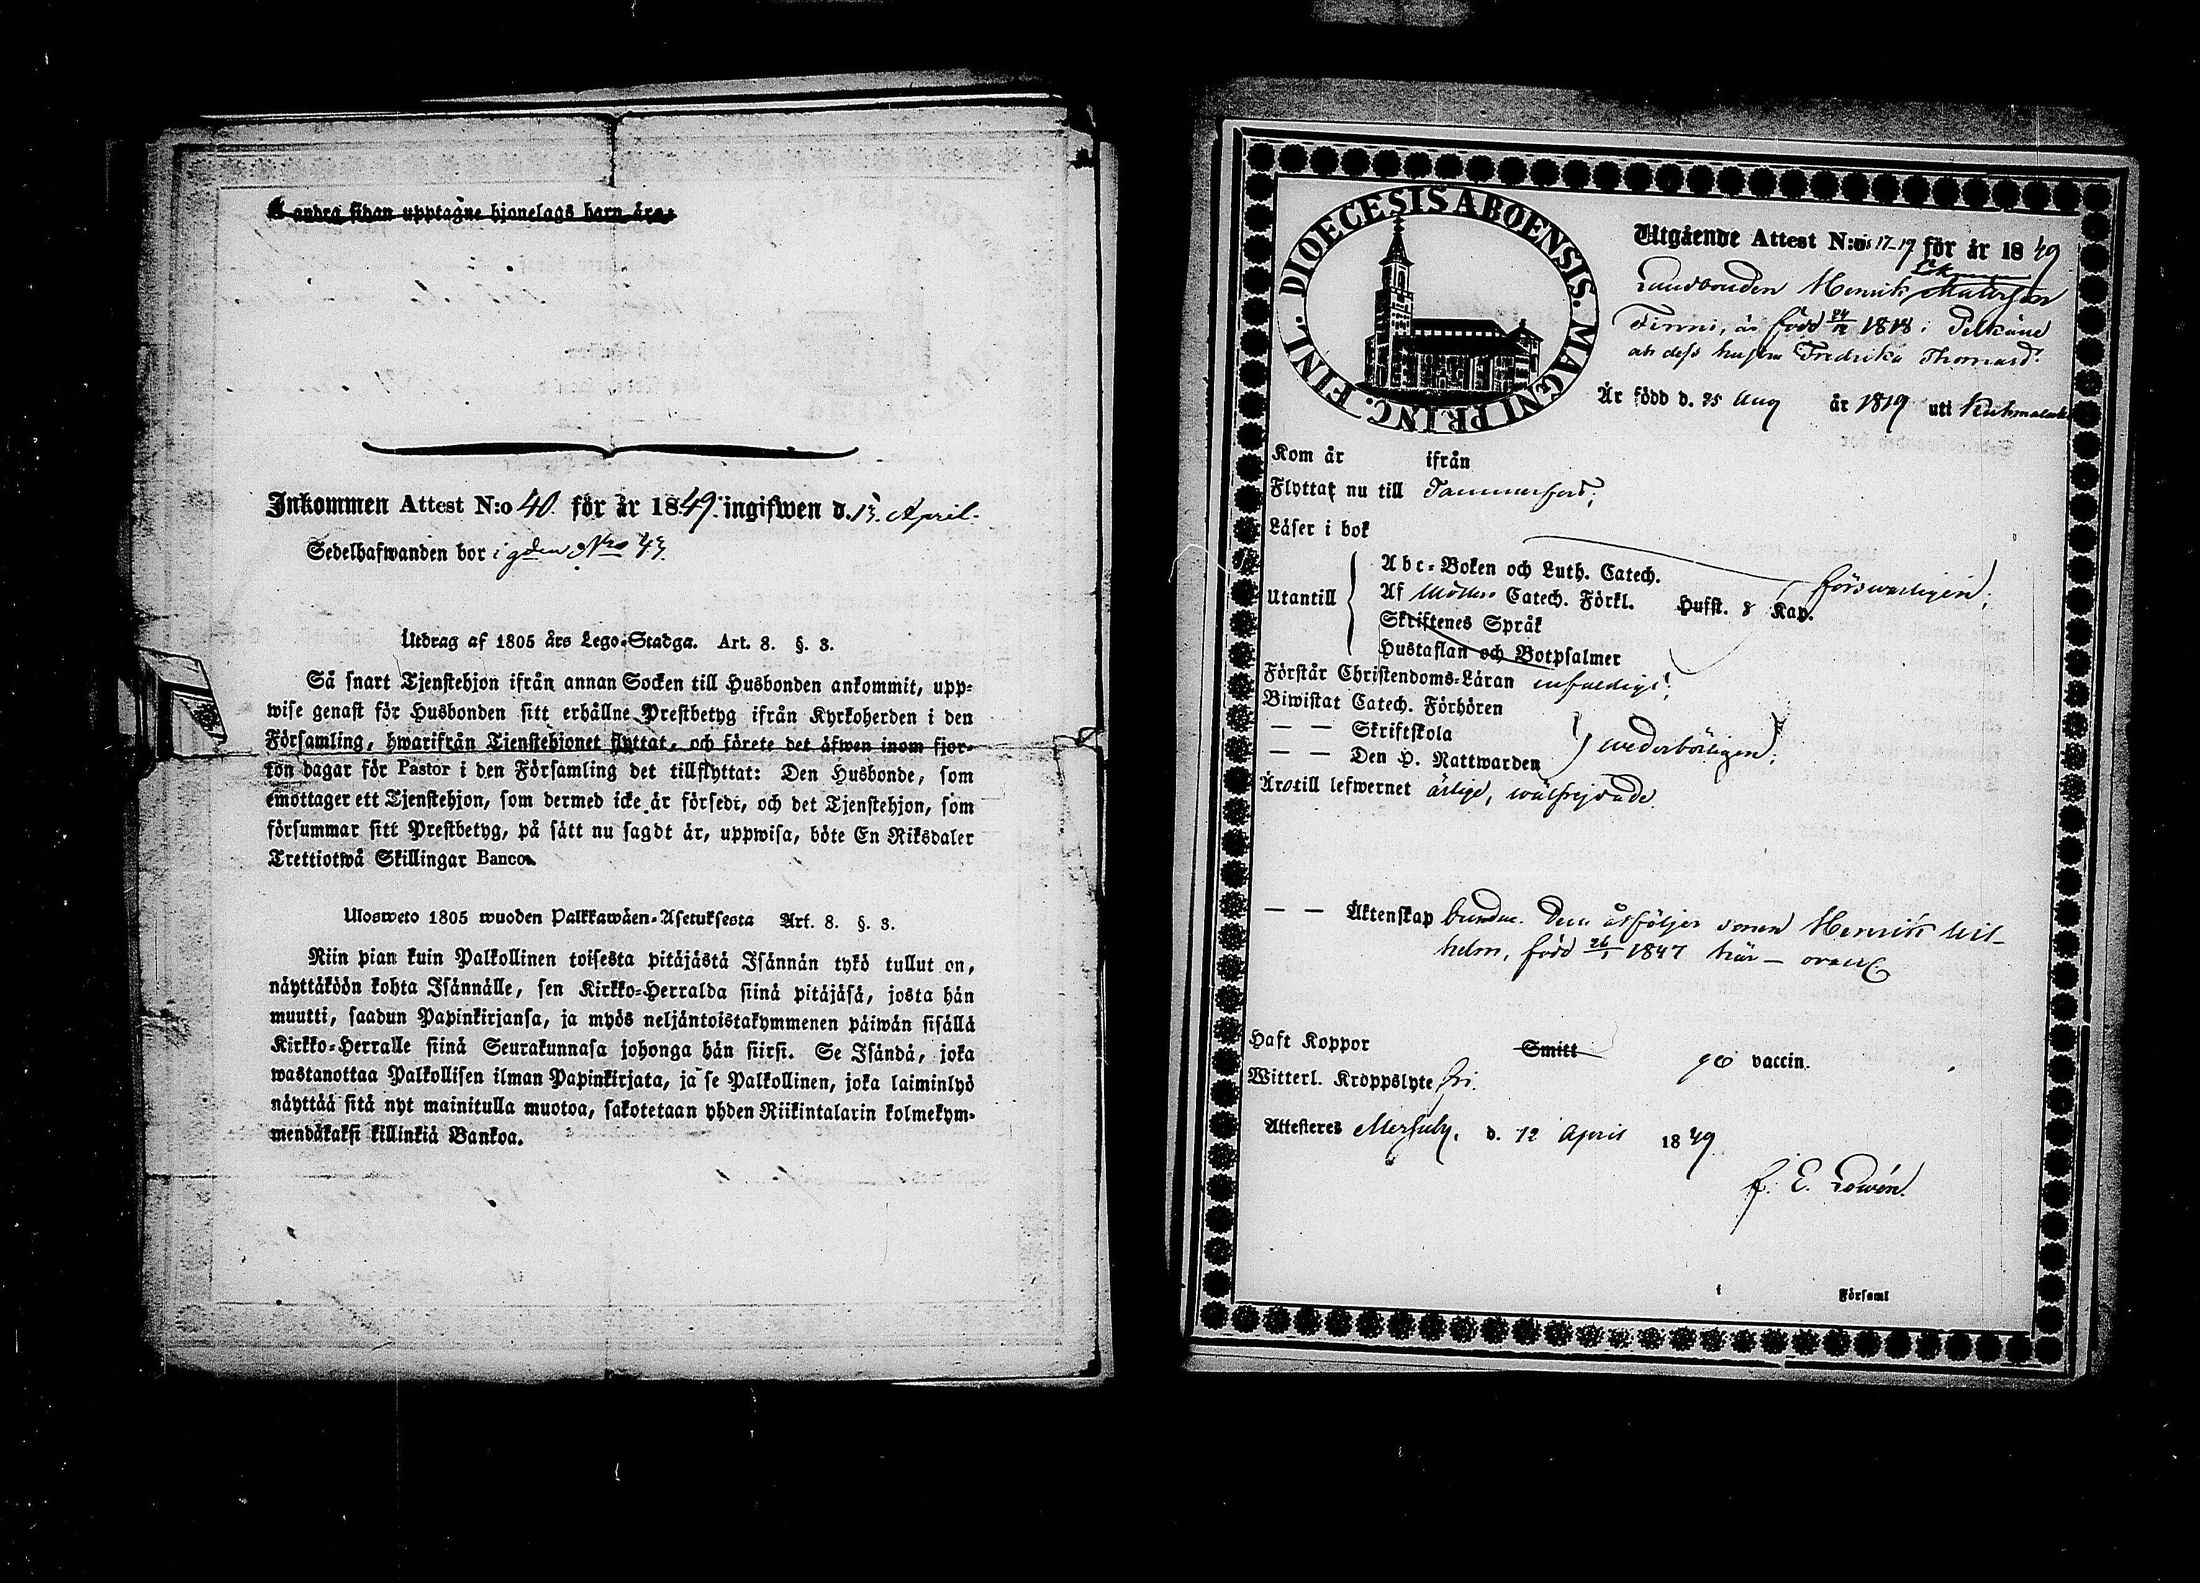 Å andra sidan upptagne hjonelags barn äro:
Inkommen Attest N:o 40 för år 1849 ingifwen d. 13 April.
Sedelhafwanden bor i gden Nro 43.
Utdrag af 1805 års Lego-Stadga. Art. 8. §. 3.
Så snart Tjenstehjon ifrån annan Socken till Husbonden ankommit, upp-
wise genast för Husbonden sitt erhållne Prestbetyg ifrån Kyrkoherden i den
Församling, hwarifrån Tjenstehjonet flyttat, och förete det äfwen inom fjor-
ton dagar för Pastor i den Församling det tillflyttat: Den Husbonde, som
emottager ett Tjenstehjon, som dermed icke är försedt, och det Tjenstehjon, som
försummar sitt Prestbetyg, på sätt nu sagdt är, uppwisa, böte En Riksdaler
Trettiotwå Skillingar Banco.
Ulosweto 1805 wuoden Palkkawäen-Asetuksesta Art. 8. §. 3.
Niin pian kuin Palkollinen toisesta pitäjästä Isännän tykö tullut on,
näyttäköön kohta Isännälle, sen Kirkko-Herralda siinä pitäjäsä, josta hän
muutti, saadun Papinkirjansa, ja myös neljäntoistakymmenen päiwän sisällä
Kirkko-Herralle siinä Seurakunnasa johonga hän siirsi. Se Isändä, joka
wastanottaa Palkollisen ilman Papinkirjata, ja se Palkollinen, joka laiminlyö
näyttää sitä nyt mainitulla muotoa, sakotetaan yhden Riikintalarin kolmekym-
mendäkaksi killinkiä Bankoa.
DIOECESIS ABOENSIS. MAGNI PRINC. FINL.
Utgående Attest N:ris 17-19 för år 1849
Landbonden Henrik
Finni, är född 24/12 1818 i Pelkäne
och dess hustru Fredrika Thomasd.
Är född d. 25 Aug år 1819 uti Kuhmalax
Kom år ifrån
Flyttat nu till Tammerfors;
Läser i bok
Utantill
Abc-Boken och Luth. Catech.
Af Möllers Catech. Förkl. Hufst. 8 Kap. förswarligen;
Skriftenes Språk
Hustaflan och Botpsalmer
Förstår Christendoms-Läran enfaldigt;
Biwistat Catech. Förhören
— — Skriftskola
— — Den H. Nattwarden wederbörligen;
Äro till lefwernet ärlige, wälfrejdade.
— — Äktenskap bundne. Dem åtföljer sonen Henrik Wil-
helm, född 26/1 1847 här —
Haft Koppor Smitt vaccin.
Witterl. Kroppslyte fri.
Attesteres Messuby, d. 12 April 1849
f. E. Lowén.
Församl